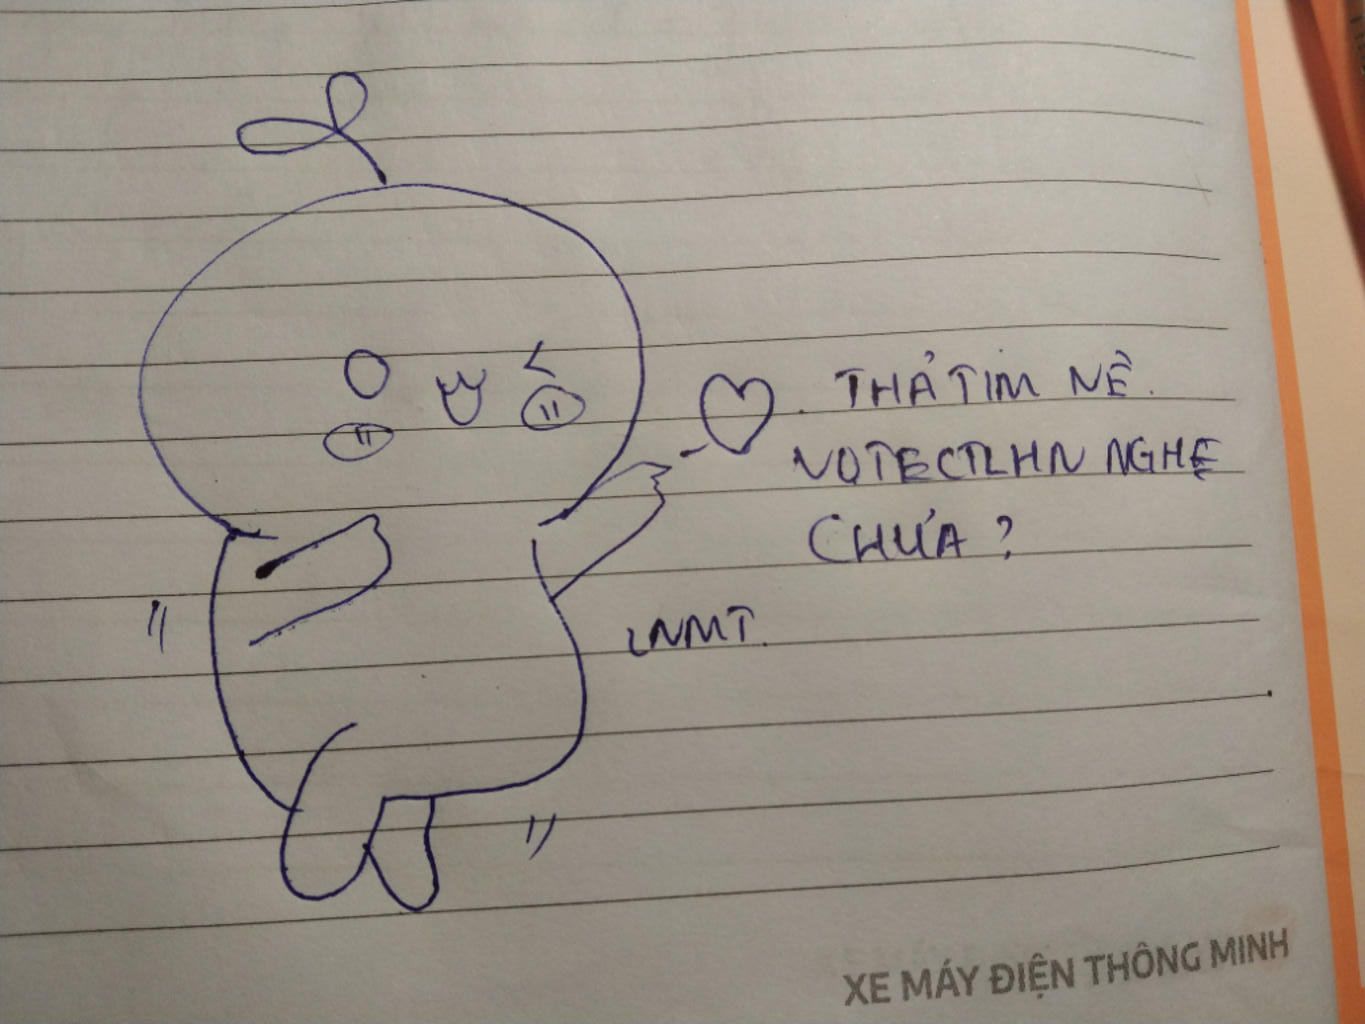 THẢ TIM NÈ.
VOTECTLHN NGHE
CHƯA?
LNMT.
XE MÁY ĐIỆN THÔNG MINH